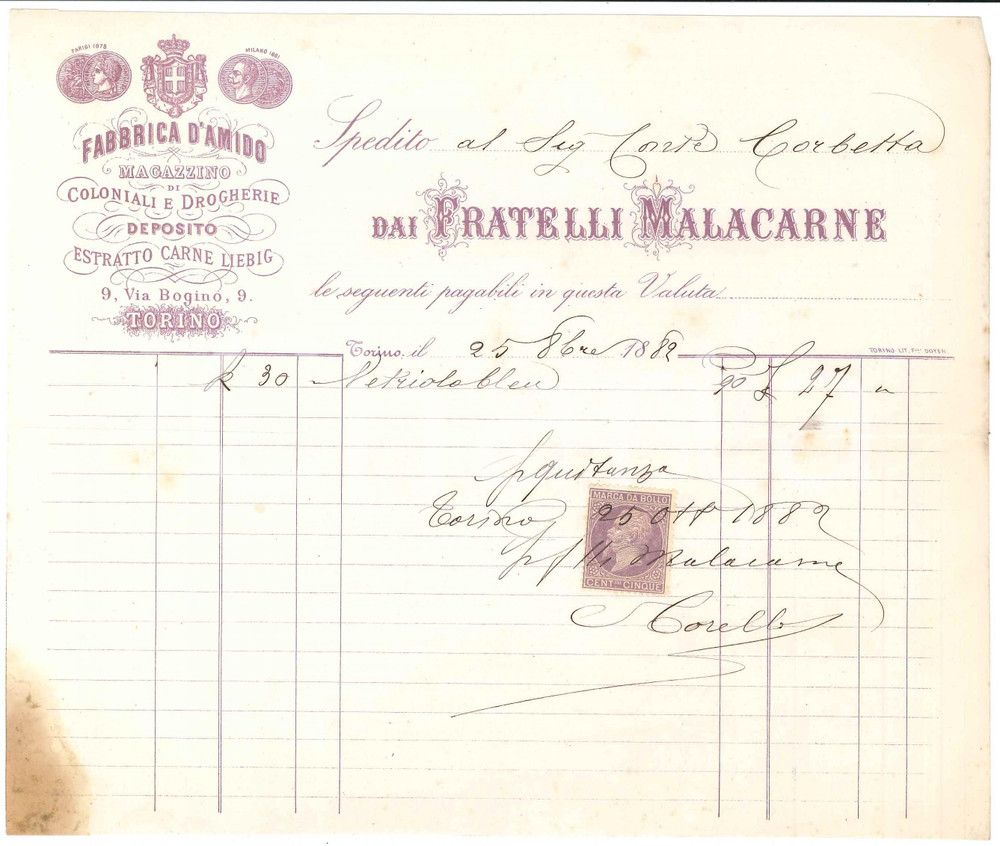 PARIGI 1878
MILANO 1881
FABBRICA D'AMIDO
MAGAZZINO
DI
COLONIALI E DROGHERIE
DEPOSITO
ESTRATTO CARNE LIEBIG
9, Via Bogino, 9.
TORINO
Spedito al Sig Conte Corbetta
DAI FRATELLI MALACARNE
le seguenti pagabili in questa Valuta
Torino, il 25 8bre 1882
TORINO LIT. F.lli DOYEN
K 30 90 £ 27 "
p quitanza
MARCA DA BOLLO
Torino 25 Ott 1882
p flli Malacarne
CENT.mi CINQUE